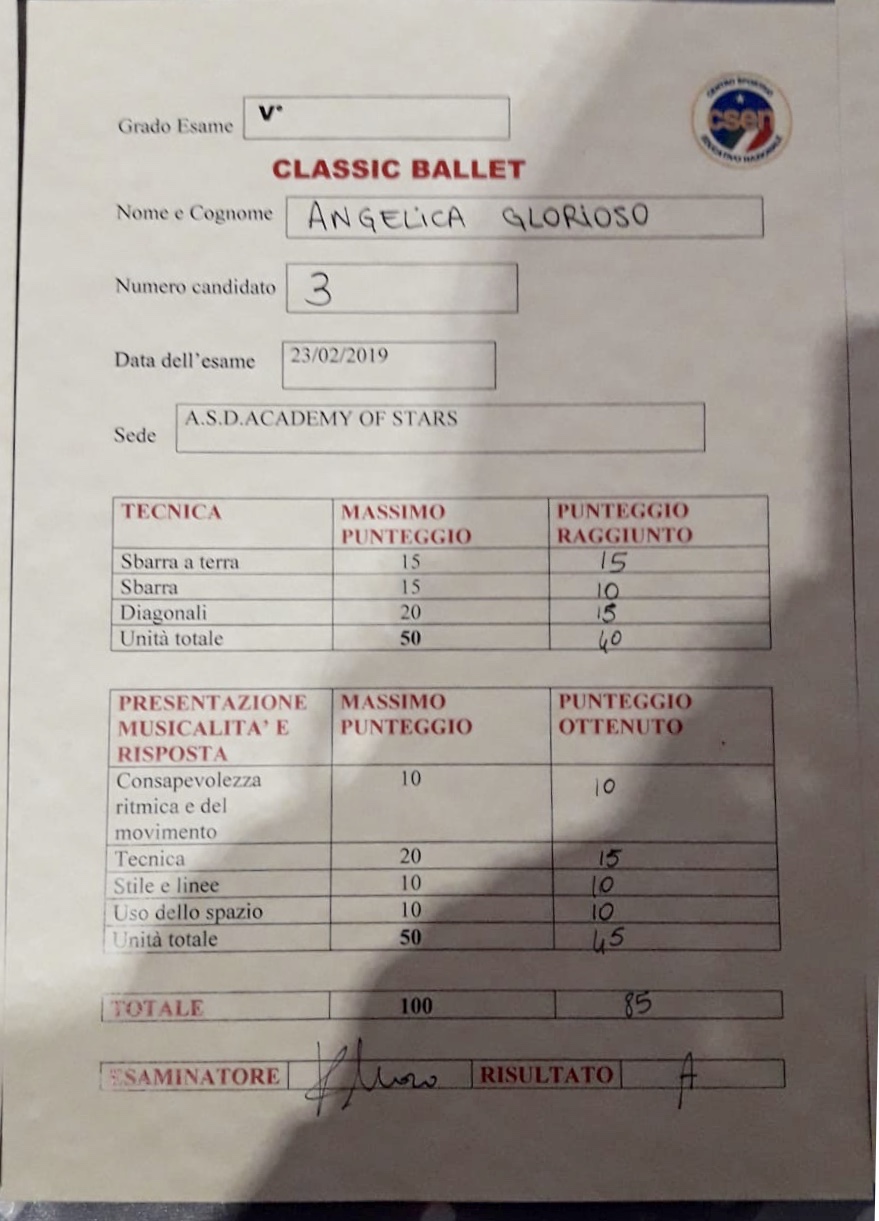 CENTRO SPORTIVO
csen
EDUCATIVO NAZIONALE
Grado Esame V°
CLASSIC BALLET
Nome e Cognome ANGELICA GLORIOSO
Numero candidato 3
Data dell'esame 23/02/2019
Sede A.S.D.ACADEMY OF STARS
TECNICA MASSIMO PUNTEGGIO
PUNTEGGIO RAGGIUNTO
Sbarra a terra 15 15
Sbarra 15 10
Diagonali 20 15
Unità totale 50 40
PRESENTAZIONE MASSIMO PUNTEGGIO
MUSICALITA' E PUNTEGGIO OTTENUTO
RISPOSTA
Consapevolezza 10 10
ritmica e del
movimento
Tecnica 20 15
Stile e linee 10 10
Uso dello spazio 10 10
Unità totale 50 45
TOTALE 100 85
ESAMINATORE RISULTATO A